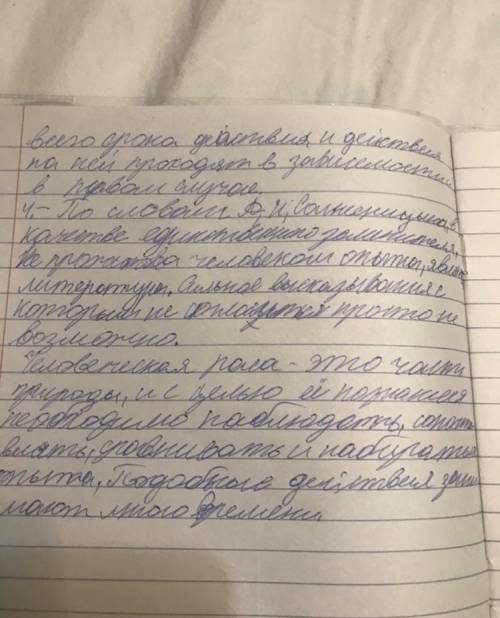 всего срока действия и действия
на ней проходят в зависемости
в первом случае.
4.- По словам А, И, Солженицына, в
качестве единственно заменителя,
не прожитова человеком опыта, являет
литература. Сильное высказывания с
которым не согласится просто не
возможно.
Человеческая раса - это часть
природы, и с целью её познания
необходимо наблюдать, сопоста
влять, сравнивать и набираться
опыта, Подобные действия зани
мают много времени.